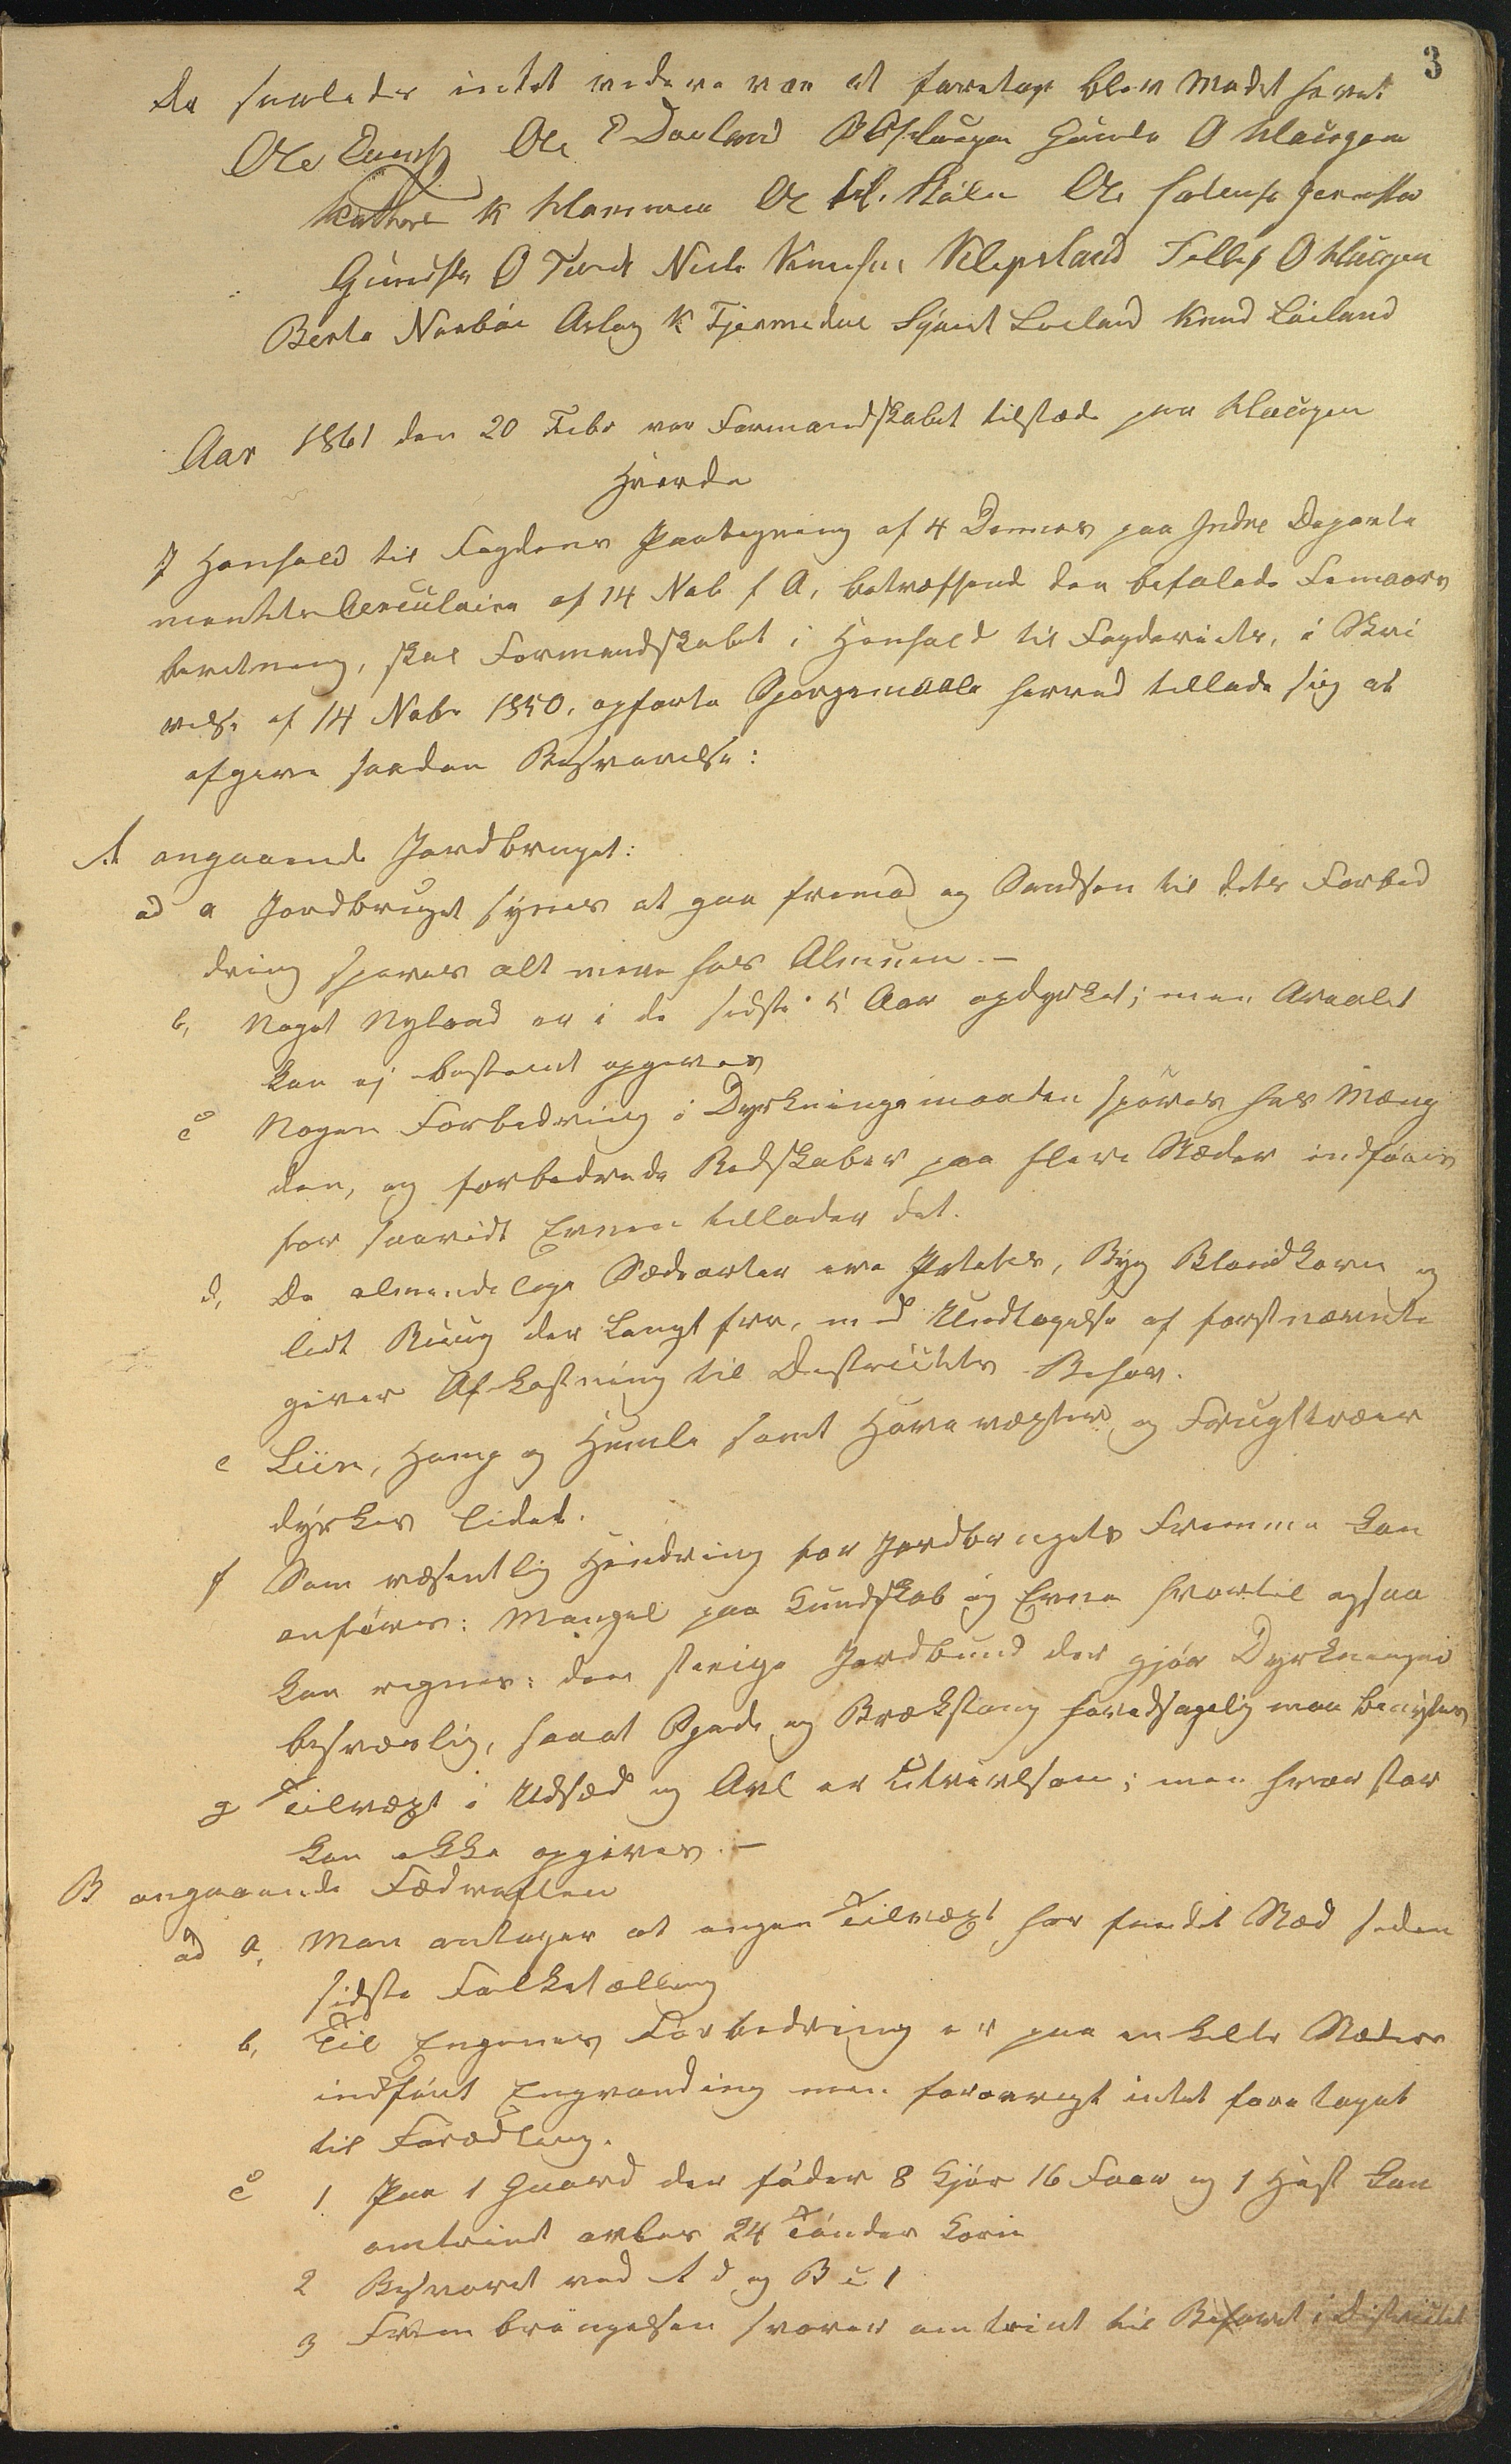 3
Da saaledes intet videre var at foretage blev Mødet hævet
Ole Ole E Dåeland Haugen Gunde O Haugen
K Homme Ole Ole
O Niels Knudsen Klepsland Tellef O Haugen
Berte Aslag K Tjermedal Syvert Loeland Knud Løiland
Aar 1861 den 20 Febr var Formandskabet tilstæde paa Haugen
Hvorda
I Henhold til Fogdens Paategning af 4 Dennes paa Indre Departe
mentets Circulaire af 14 Nob f A, betræffend den befalede Femaars
beretning, skal Formandskabet i Henhold til Fogderiets, i Skri
velse af 14 Nobr 1850, opførte Spørgsmaale herved tillade sig at
afgive saadan Besvarelse:
A angaaende Jordbruget:
ad a Jordbruget synes at gaa fremad og Sandsen til dets Forbed
dring spores alt mere hos Almuen. —
b, Noget Nyland er i de sidste 5 Aar opdyrket; men Arealet
kan ej bestemt opgives
c Nogen Forbedring i Dyrkningsmaaden spores hos Mæng
den, og forbedrede Redskaber paa flere Stæder indføres
for saavidt Evnen tillader det.
d, De almindelige Sædearter ere Potetes, Byg Blandkorn og
lidt Ruug der langt fra, med Undtagelse af førstnævnte
giver Afkastning til Destrictets Behov.
e Liin, Hamp og Humle samt Havevæxter og Frugttræer
dyrkes lidet.
f Som væsentlig Hindring for Jordbrugets Fremme kan
anføres: Mangel paa Kundskab og Evne hvortil ogsaa
kan regnes: den stenige Jordbund der gjør Dyrkningen
besværlig, saaat Spade og Brækstang hovedsagelig maa benyttes
g Tilvæxt i Udsæd og Avl er utvivlsom; men hvor stor
kan ikke opgives. —
B angaaende Fædrivten
ad a, Man antager at ingen Tilvæxt har fundet Stæd siden
sidste Folketælling
b, Til Engenes Forbedring er paa enkelte Stæder
indført Engvanding men forøvrigt intet foretaget
til Forædling.
c 1 Paa 1 Gaard der føder 8 Kjør 16 Faar og 1 Hest kan
omtrent avles 24 Tønder Korn
2 Besvaret ved A d og B c 1
3 Frembringelsen svarer omtrint til Behovet i Districtet